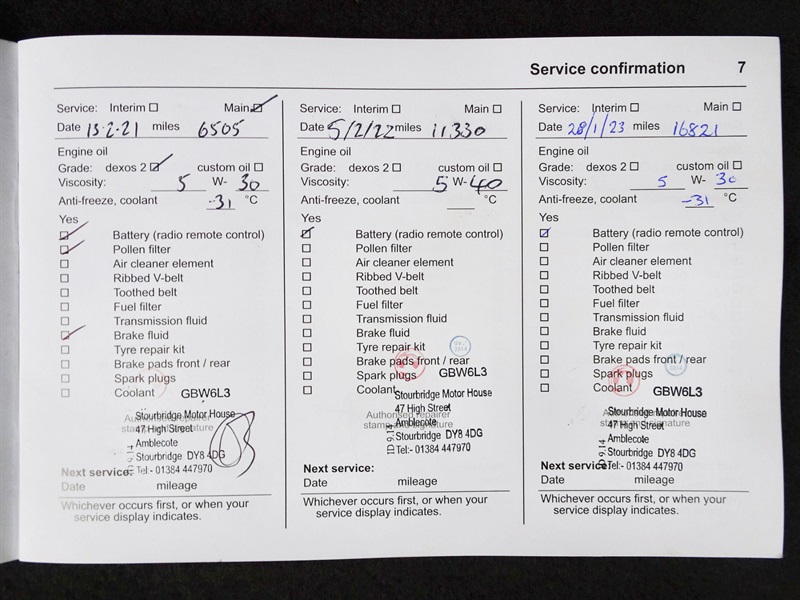 Service confirmation 7
Service: Interim Main
Date 13-2-21 miles 6505
Engine oil
Grade: dexos 2 custom oil
Viscosity: 5 W- 30
Anti-freeze, coolant -31 °C
Yes
Battery (radio remote control)
Pollen filter
Air cleaner element
Ribbed V-belt
Toothed belt
Fuel filter
Transmission fluid
Brake fluid
Tyre repair kit
Brake pads front / rear
Spark plugs
Coolant GBW6L3
Stourbridge Motor House
47 High Street
Amblecote
Stourbridge DY8 4DG
Tel:- 01384 447970
Next service:
Date mileage
Whichever occurs first, or when your
service display indicates.
Service: Interim Main
Date 5/2/22 miles 11330
Engine oil
Grade: dexos 2 custom oil
Viscosity: 5 W- 40
Anti-freeze, coolant °C
Yes
Battery (radio remote control)
Pollen filter
Air cleaner element
Ribbed V-belt
Toothed belt
Fuel filter
Transmission fluid
Brake fluid
Tyre repair kit
Brake pads front / rear
Spark plugs GBW6L3
Coolant
Stourbridge Motor House
47 High Street
Authorised repairer
stamp and signature
Amblecote
Stourbridge DY8 4DG
Tel:- 01384 447970
Next service:
Date mileage
Whichever occurs first, or when your
service display indicates.
Service: Interim Main
Date 28/1/23 miles 16821
Engine oil
Grade: dexos 2 custom oil
Viscosity: 5 W- 30
Anti-freeze, coolant -31 °C
Yes
Battery (radio remote control)
Pollen filter
Air cleaner element
Ribbed V-belt
Toothed belt
Fuel filter
Transmission fluid
Brake fluid
Tyre repair kit
Brake pads front / rear
Spark plugs
Coolant GBW6L3
Stourbridge Motor House
47 High Street
Amblecote
Stourbridge DY8 4DG
Tel:- 01384 447970
Next service:
Date mileage
Whichever occurs first, or when your
service display indicates.